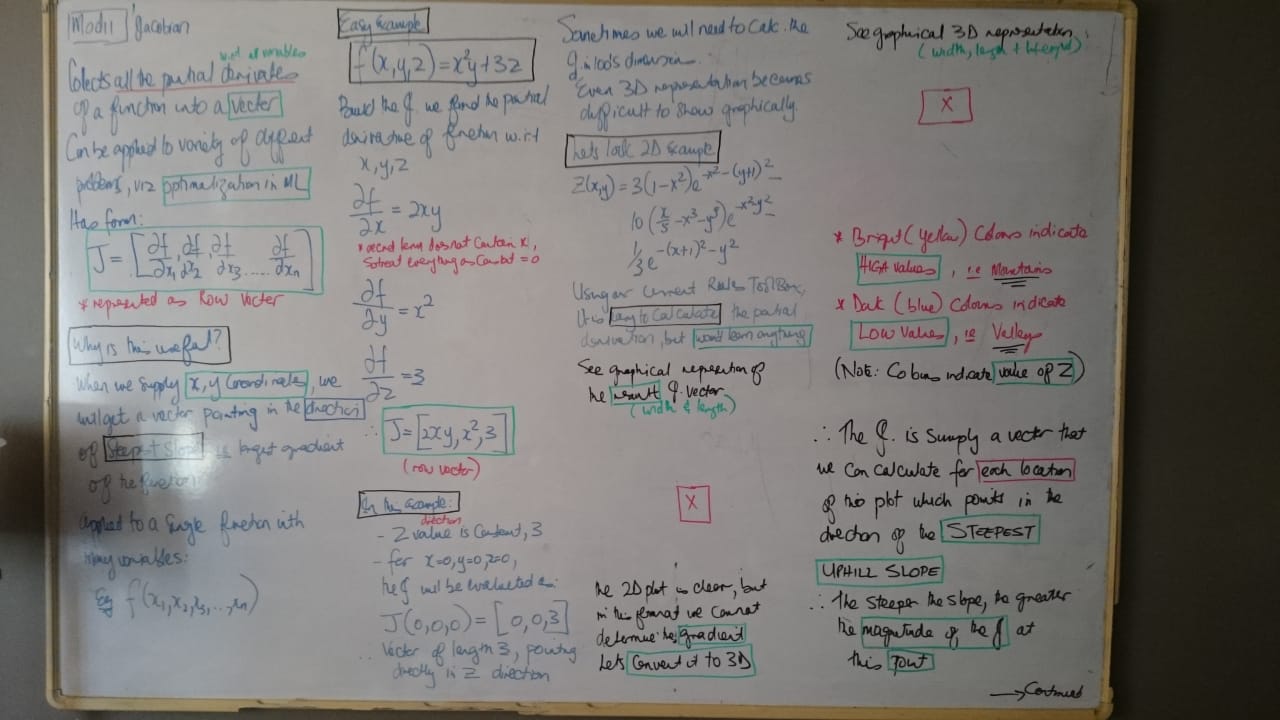 Mod11 Jacobian
w.r.t all variables
Collects all the partial derivates
of a function into a vector
Can be applied to variety of different
problems, viz optimalization in ML
Has form:
J = [∂f/∂x1, ∂f/∂x2, ∂f/∂x3 ...... ∂f/∂xn]
* represented as Row Vector
Why is this useful?
When we supply x, y coordinates, we
will get a vector pointing in the direction
of Steepest Slope ie largest gradient
of the function
applied to a single function with
many variables:
Eg f(x1, x2, x3, .., xn)
Easy Example
f(x, y, z) = x²y + 3z
Build the J we find the partial
derivative of function w.r.t
x, y, z
∂f/∂x = 2xy
* second term does not contain x,
So treat everything as Constant = 0
∂f/∂y = x²
∂f/∂z = 3
∴ J = [2xy, x², 3]
(row vector)
In this example:
direction
- Z value is Constant, 3
- for x=0, y=0, z=0,
the J will be evaluated as:
J(0,0,0) = [0,0,3]
∴ Vector of length 3, pointing
directly in Z direction
Sometimes we will need to calc. the
J in 100s dimension.
Even 3D representation becomes
difficult to show graphically.
Lets look 2D Example
Z(x,y) = 3(1-x²)e^-x²-(y+1)² -
10(x/5 - x³ - y⁵)e^-x²y² -
1/3e^-(x+1)²-y²
Using our current Rules Toolbox,
It is easy to calculate the partial
derivation, but wont learn anything
See graphical represention of
the result J. vector
(width & length)
X
the 2D plot is clear, but
in this format we cannot
determine the gradient
Lets Convert it to 3D
See graphical 3D representation
(width, length + height)
X
* Bright (yellow) Colours indicate
HIGH Values, ie Mountains
* Dark (blue) Colours indicate
LOW Values, ie Valleys
(Note: Colours indicate value of Z)
∴ The J. is Simply a vector that
we can calculate for each location
of this plot which points in the
direction of the STEEPEST
UPHILL SLOPE
∴ The Steeper the Slope, the greater
the magnitude of the J at
this Point
→ Continued